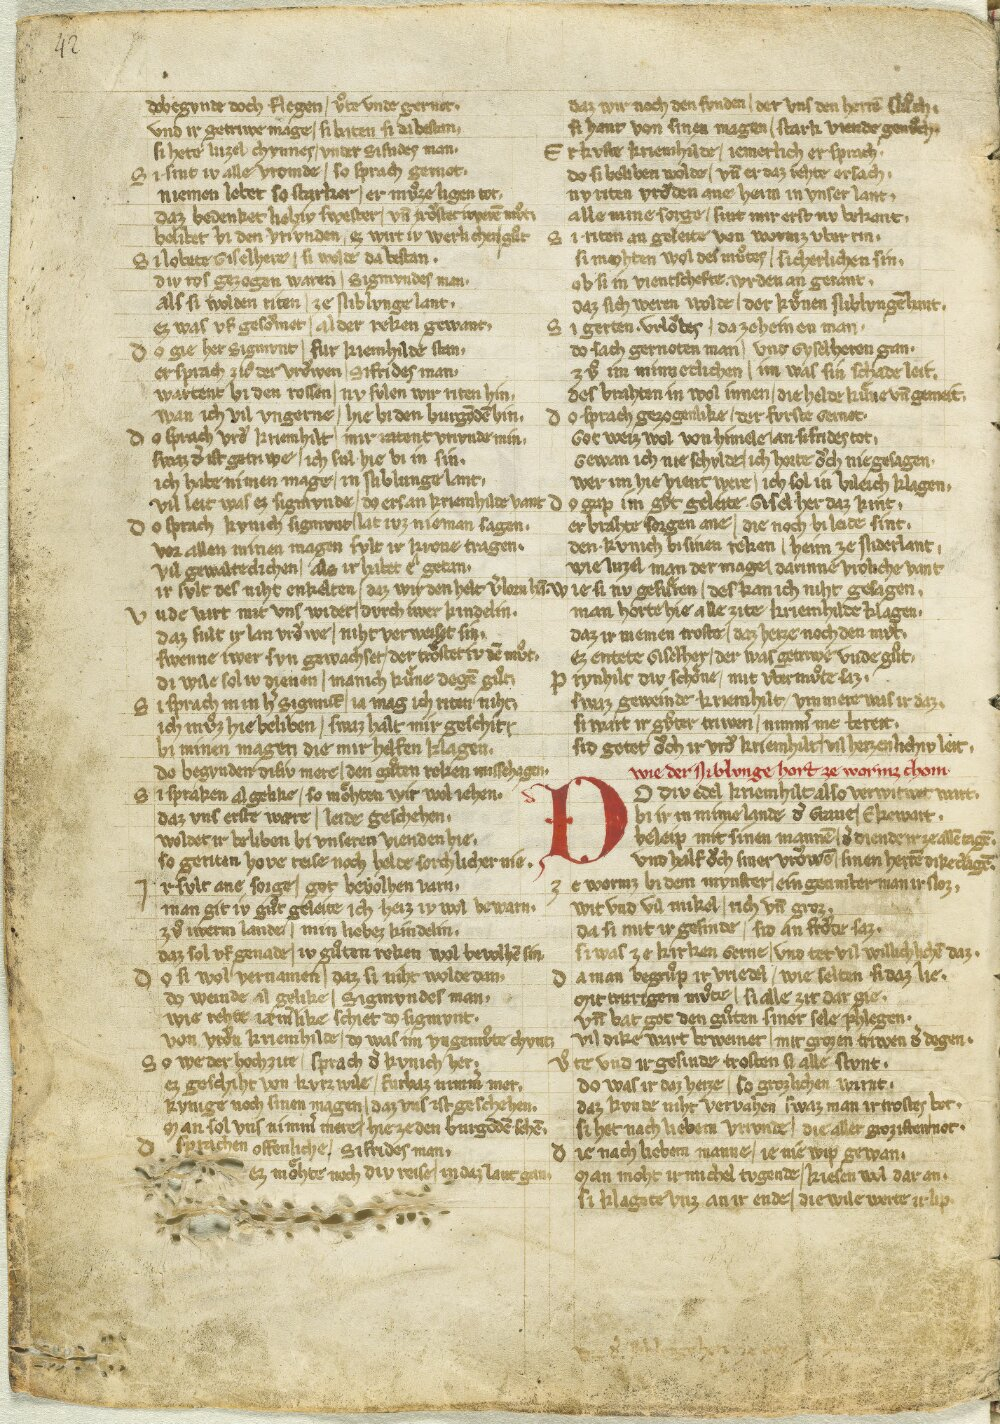 42
do begvnde doch flegen / vͦte vnde gernot.
vnd ir getriwe mage / si biten si da bestan.
si hete lvzel chvnnes / vnter Sifrides man.
Si sint iv alle vromde / so sprach gernot.
niemen lebet so starker / er mvͦze ligen tot.
daz bedenket liebiv swester / vn̄ trͦstet iweren mvͦt.
belibet bi den vrivnden / ez wirt iv werlichen gvͦt
Si lobete Giselhere / si wolde da bestan.
div ros gezogen waren / Sigmvndes man.
als si wolden riten / ze Niblvnge lant.
ez was vf gesoͮmet / al der reken gewant.
Do gie her Sigmvnt / fur kriemhilde stan.
er sprach zvͦ der vroͮwen / Sifrides man.
wartent bi den rossen / nv svlen wir riten hin.
wan ich vil vngerne / hie bi den burgōdē bin.
Do sprach vroͮ kriemhilt / mir ratent vrivnde min.
swaz d̓ ist getriwe / ich sul hie bi in sin.
ich habe nimen mage / in Niblunge lant.
vil leit was ez sigmvnde / do ers an kriemhilde vant
Do sprach kvnich sigmvnt / lat ivz nieman sagen.
vor allen minen magen svlt ir krone tragen.
vil gewalteclichen / als ir habet e getan.
ir svlt des niht enkelten / daz wir den helt v̓lorn hān.
Vnde vart mit vns wider / dvrch iwer kindelin.
daz sult ir lan vroͮwe / niht verweiset sin.
swenne iwer svn gewachset / der troͤstet iv dē mvͦt.
di wile sol iv dienen / manich kuͤne degē gvͦt
Si sprach min h̓ Sigmūt / ia mag ich riten niht.
ich mvͦz hie beliben / swaz halt mir geschiht
bi minen magen die mir helfen klagen.
do begvnden disiv mere / den gvͦten reken missehagen.
Si spraken al gelike / so moͤhten wir wol iehen.
daz vns erste were / leide geschehen.
woldet ir beliben bi vnseren vienden hie.
so geriten hove reise noch helde sorchlicher nie.
Ir svlt ane sorge / got bevolhen varn.
man git iv gvͦt geleite ich heiz iv wol bewarn.
zvͦ iwerm lande / min liebez kindelin.
daz sol vf genade / iv gvͦten reken wol bevolhē sin.
Do si wol vernamen / daz si niht wolde dan.
do weinde al gelike / Sigmvndes man.
wie rehte iæmlike schiet do sigmvnt.
von vroͮn kriemhilde / do was im vngemvͦte chvnt
So we der hochzite / sprach d̓ kvnich her.
ez geschiht von kvrzwile / furbaz nimm̓ mer.
kvnige noch sinen magen / daz vns ist geschehen.
Man sol vns nimm̓ mere / hie ze den burgōdē sehē.
Do sprachen offenliche / Sifrides man.
ez moͤhte noch div reise / in daz lant gan.
daz wir noch den fvnden / der vns den herrē sluͦch.
si hant von sinen magen / stark viende genvͦch.
Er kvste kriemhilde / iemerlich er sprach.
do si beliben wolde / vn̄ er daz rehte ersach.
nv riten vroͤden ane heim in vnser lant.
alle mine sorge / sint mir erst nv bekant.
Si riten an geleite von wormz vbir rin.
si mohten wol des mvͦtes / sicherlichen sin.
ob si in vientschefte wrden an gerant.
daz sich weren wolde / der kuͤnen Niblvngē hant.
Si gerten vrloͮbes / da ze heinen man.
do sach gernoten man / vnd Gyselheren gan.
zvͦ im minneclichen / im was sin schade leit.
des brahten in wol innen / die helde kuͤne vn̄ gemeit.
Do sprach gezogenlike / der fvrste Gernot.
Got weiz wol von himele / an Sifrides tot.
Gewan ich nie schvlde / ich horte oͮch nie gesagen.
wer im hie vient were / ich sol in bileich klagen.
Do gap im gvͦt geleite Giselher daz kint.
er brahte sorgen ane / die noch bi leide sint.
den kvnich bi sinen reken / heim ze Niderlant.
wie lvzel man der mage / darinne vroliche vant
Wie si nv gefuͤren / des kan ich niht gesagen.
man horte hie alle zite kriemhilde klagen.
daz ir niemen troste / daz herze noch den mvͦt.
ez entete Giselher / der was getriwe vnde gvͦt.
Prynhilt div schoͤne / mit vbermvͦte saz.
swaz geweinde kriemhilt / vnmere was ir daz.
si wart ir gvͦter triwen / nimm̓ me bereit.
sid getet oͮch ir vroͮ kriemhilt / vil herzenlichiv leit.
wie der Niblunge hort ze wormz chom
DO div edel kriemhilt also verwitwet wart.
bi ir in mime lande d̓ Graue / Ekewart.
beleip mit sinen mannē / d̓ diende ir ze allē tagē.
vnd half oͮch siner vroͮwē / sinen herrē dike clagē.
Ze wormz bi dem mvnster / ein gezimber man ir sloz.
wit vnd vil mikel / rich vn̄ groz.
da si mit ir gesinde / sid an froͤde saz.
si was ze kirken gerne / vnd tet vil willichlichē daz.
Da man begrvͦp ir vriedel / wie selten si daz lie.
Mit trurigem mvͦte / si alle zit dar gie.
vn̄ bat got den gvͦten siner sele phlegen.
vil dike wart beweinet / mit grozen triwen d̓ degen.
Vͦte vnd ir gesinde trosten si alle stvnt.
do was ir daz herze / so grozlichen wunt.
daz kvnde niht vervahen / swaz man ir trostes bot.
si het nach liebem vrivnde / die aller grozisten not.
Die nach liebem manne / ie nie wip gewan.
Man moht ir michel tvgende / kiesen wol dar an.
si klagete vnz an ir ende / die wile werte ir lip.